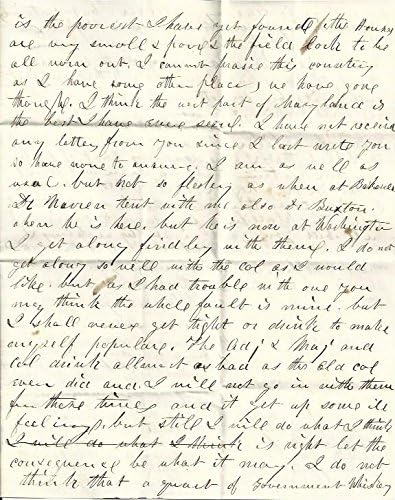 is the poorest I have yet found the Houses
are very small & poor & the field look to be
all worn out. I cannot praise this country
as I have some other places we have gone
through. I think the west part of Maryland is
the best I have ever seen. I have not received
any letter from you since I last wrote you
so have none to answer. I am as well as
usual. but not so fleshy as when at
Dr tent with me also Dr Buxton.
when he is here. but he is now at Washington
I get along finely with them. I do not
get along so well with the col as I would
like. but as I had trouble with one you
may think the whole fault is mine. but
I shall never get tight or drink to make
myself populare. The Adj & Maj and
col drink allmost as bad as the old col
ever did and I will not go in with them
for these times and it get up some ill
feeling. but still I will do what I think
I will do what I think is right let the
consequence be what it may. I do not
think that a quart of Government Whiskey